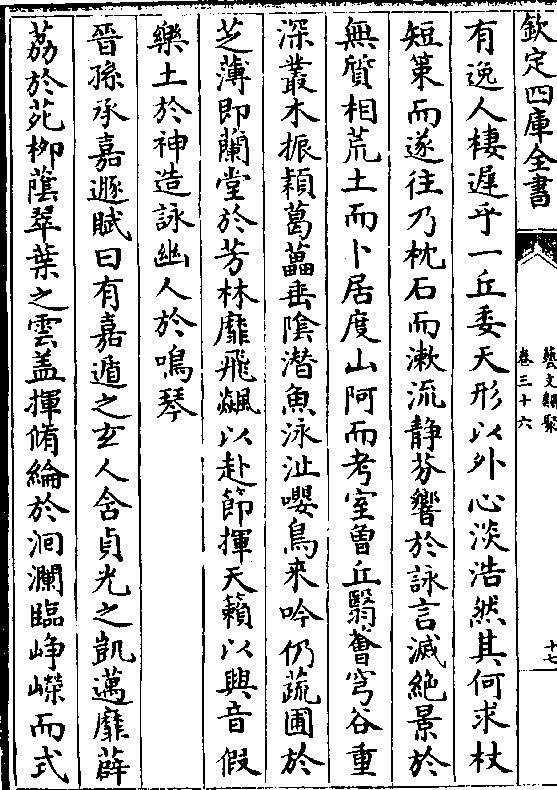 欽定四庫全書
藝文類聚
卷三十六
十七
有逸人棲遲乎一丘委天形以外心淡浩然其何求杖
短策而遂往乃枕石而漱流静芬響於詠言滅絶景於
無質相荒土而卜居度山阿而考室曾丘翳薈穹谷重
深叢木振穎葛藟垂陰潜魚泳沚嚶鳥来吟仍蔬圃於
芝薄即蘭堂於芳林靡飛飈以赴節揮天籟以興音假
樂土於神造詠幽人於鳴琴
晉孫承嘉遯賦曰有嘉遁之玄人含貞光之凱邁靡薜
荔於苑栁蔭翠葉之雲盖揮脩綸於洄瀾臨峥嶸而式